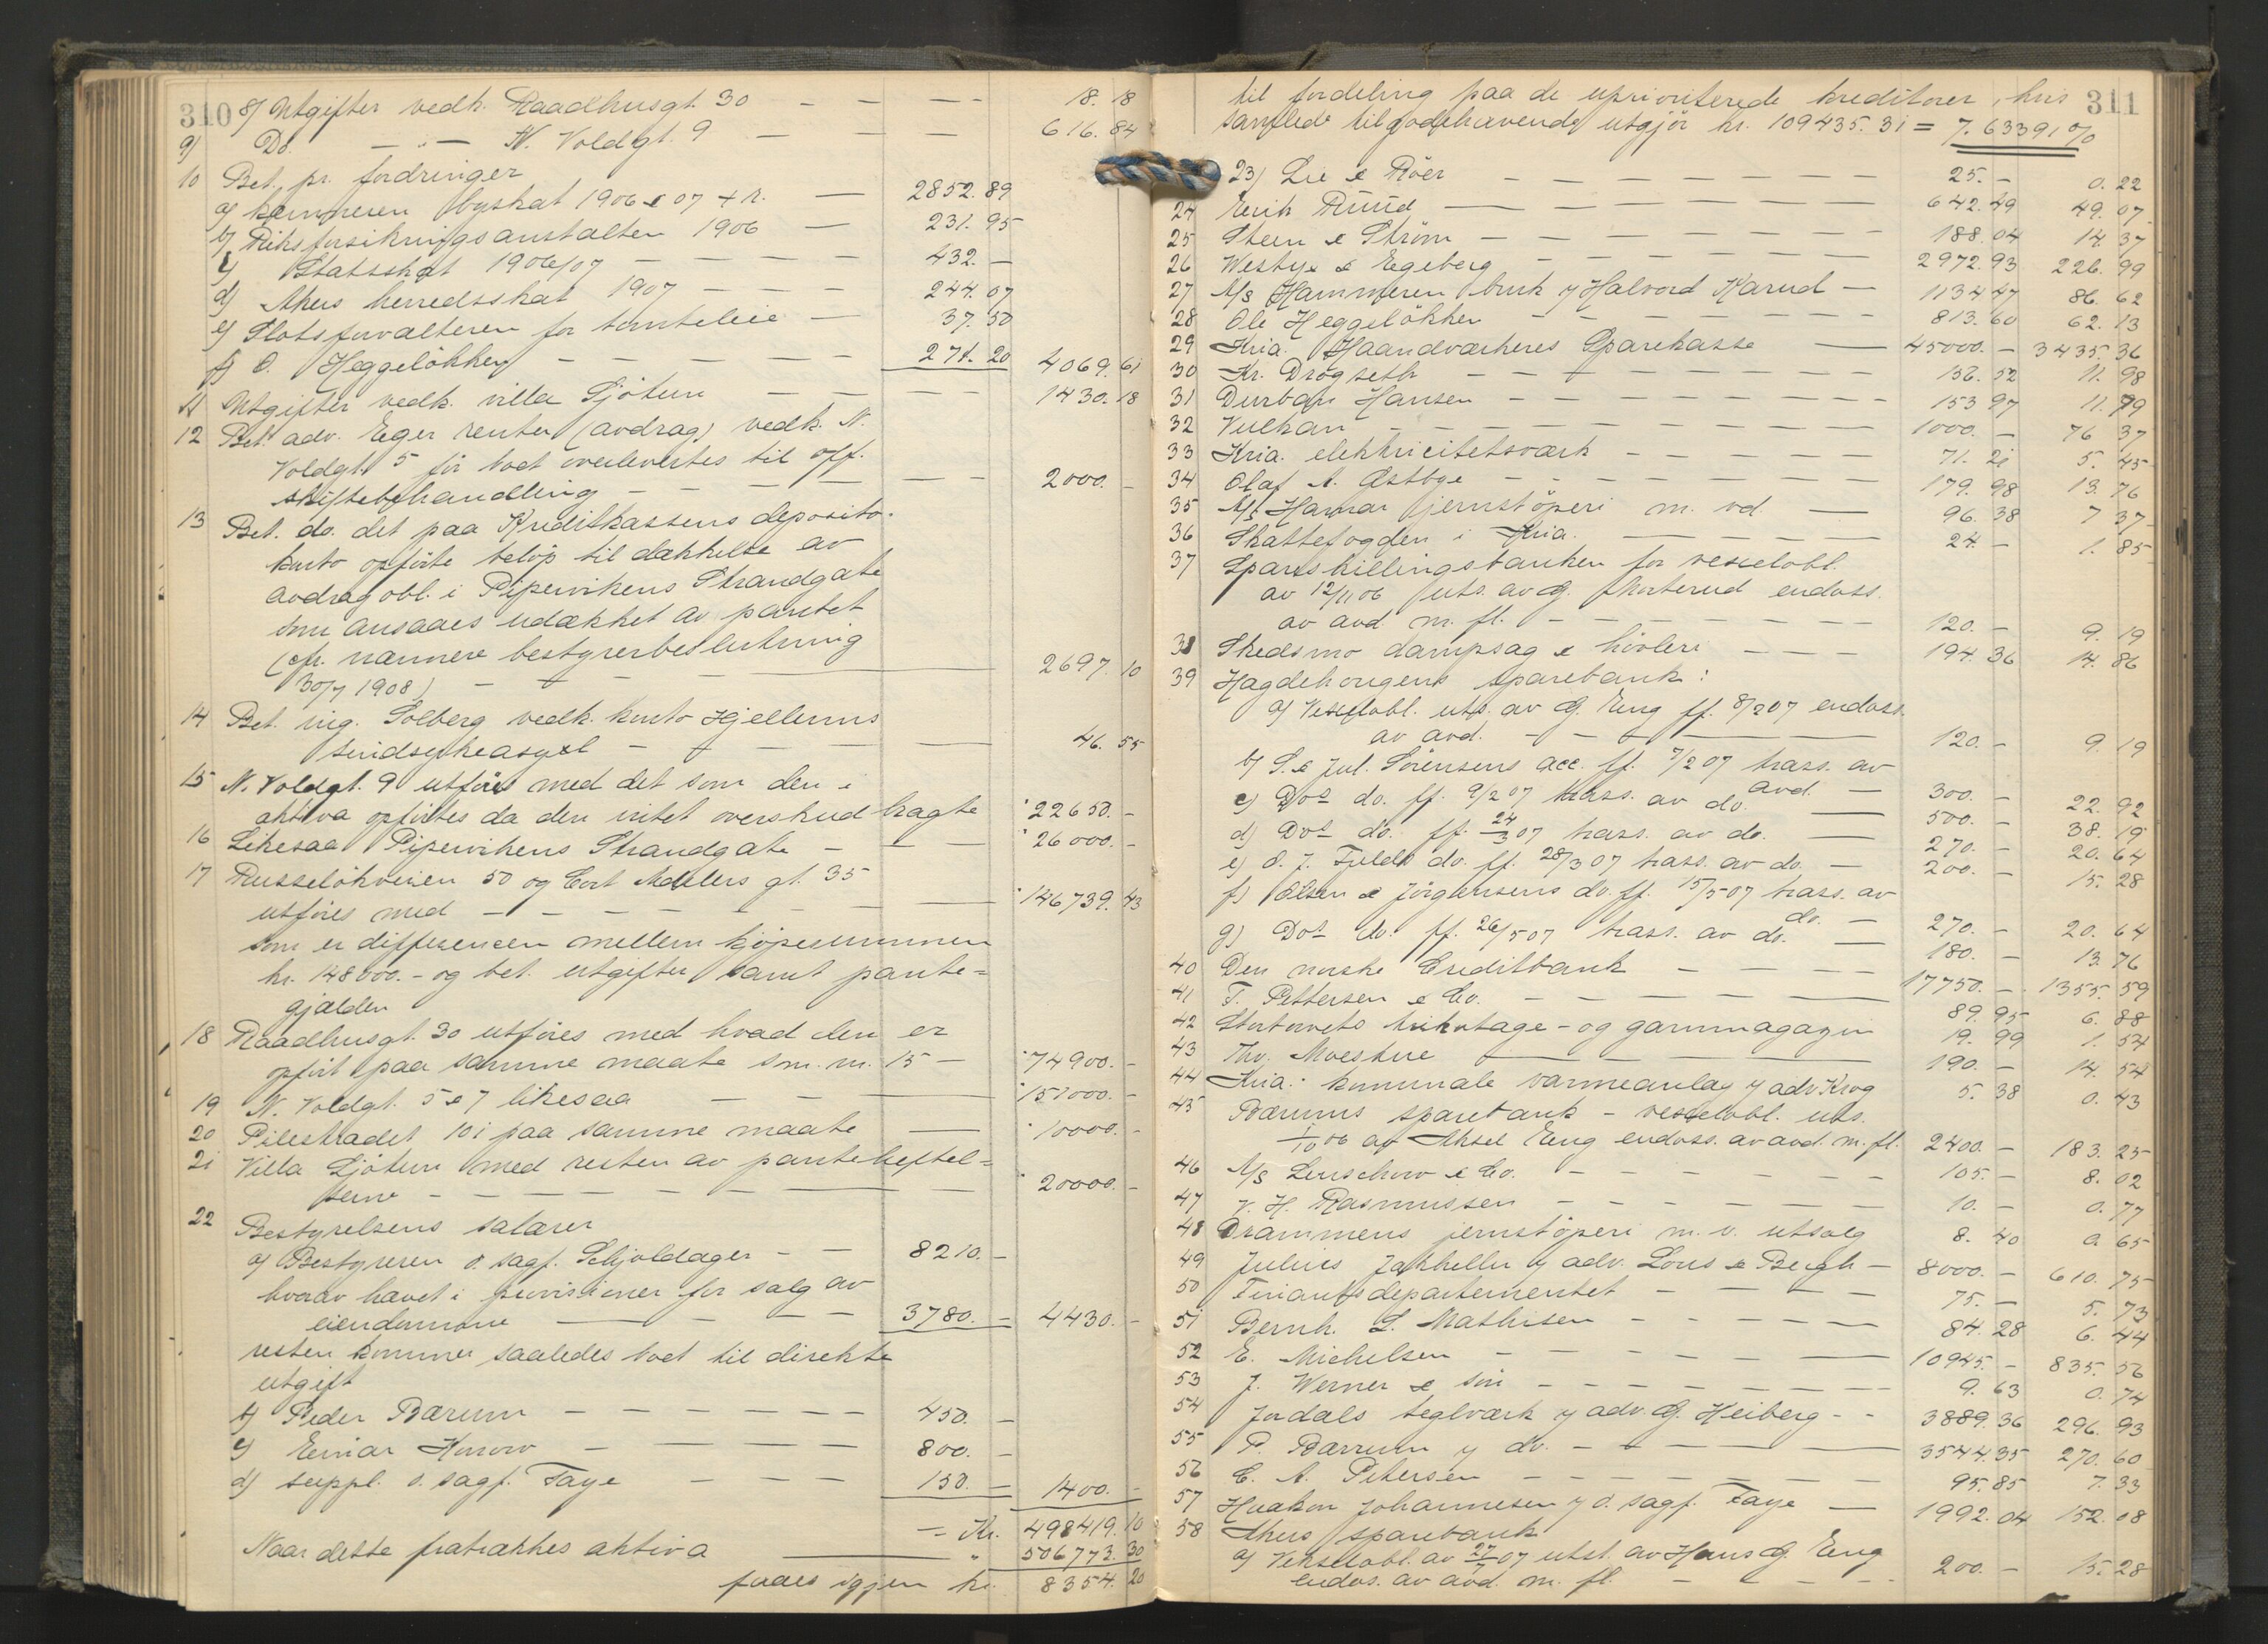 310
8) Utgifter vedk. Raadhusgt. 30 — — — - 18. 18
9) Do. — „ — N. Voldgt. 9 — — — 616. 84
10 Bet. pr. fordringer
a) kemneren byskat 1906 & 07 + r. — 2852. 89
b) Riksforsikringsanstalten 1906 — 231. 95
c) Statsskat 1906/07 — — — — — 432. —
d) Akers herredsskat 1907 — — — 244. 07
e) Slotsforvalteren for tomteleie — 37. 50
f) O. Heggelökken — — — — — 271. 20 4069. 61
11 Utgifter vedk. villa Sjötun — — — — 1430. 18
12 Bet. adv. Eger renter (avdrag) vedk. N.
Voldgt. 5 för boet overlevertes til off.
skiftebehandling — — — — — — 2000. -
13 Bet. do. det paa Kreditkassens deposito-
konto opförte belöp til dækkelse av
avdragobl. i Pipervikens Strandgate
som ansaaes udækket av pantet
(cfr. nærmere bestyrerbeslutning
30/7 1908) — — — — 2697. 10
14 Bet. ing. Solberg vedk. konto Hjellums
sindsykeasyl — — — — — 46. 55
15 N. Voldgt. 9 utföres med det som den i
aktiva opförtes da den intet overskud bragte 22650. -
16 Likesaa Pipervikens Strandgate — — — 26000. -
17 Russelökveien 50 og Cort Adelers gt. 35
utföres med — — — — — — — 146739. 43
som er differencen mellem kjöpesummen
kr. 148000.- og bet. utgifter samt pante=
gjælden
18 Raadhusgt. 30 utföres med hvad den er
opfört paa samme maate som nr. 15 — 74900. -
19 N. Voldgt. 5 & 7 likesaa — — — 151000. -
20 Pilestrædet 101 paa samme maate — 10000. -
21 Villa Sjötun med resten av pantehæftel=
serne — — — — — — — — 20000. -
22 Bestyrelsens salærer
a) Bestyreren o. sagf. Schjoldager — — 8210. -
hvorav hævet i provisioner for salg av
eiendommene — — — 3780. - 4430. -
resten kommer saaledes boet til direkte
utgift
b) Peder Bærum — — — — — — 450. -
c) Einar — — — — — 800. -
d) suppl. o. sagf. Faye — — — 150. - 1400. -
— Kr. 498419. 10
Naar dette fratrækkes aktiva — „ 506773. 30
faaes igjen kr. 8354. 20
311
til fordeling paa de uprioriterede kreditorer, hvis
samlede tilgodehavende utgjör kr. 109435.31 = 7.63391 %
23) Lie & Röer — — — — — — — 25. - 0. 22
24 Erik Ruud — — — — — — 642. 49 49. 07
25 Steen & Ström — — — — — — 188. 04 14. 37
26 Westye & Egeberg — — — — — — 2972. 93 226. 99
27 A/S Hammeren bruk v/ Halvord Karud — 1134 47 86. 62
28 Ole Heggelökken — — — — — — 813. 60 62. 13
29 Kria. Haandværkeres Sparekasse — 45000. - 3435. 36
30 Kr. Drogseth — — — — — — — 156. 52 11. 98
31 Durban Hansen — — — — — — — 153 97 11. 79
32 Vulkan — — — — — — — — 1000. - 76 37
33 Kria. elektricitetsværk — — — — — 71. 21 5. 45
34 Olaf A. Østbye — — — — — — — 179. 98 13. 76
35 A/S Hamar jernstöperi m. vd. — 96. 38 7 37
36 Skattefogden i Kria. — — — — 24. - 1. 85
37 Spareskillingsbanken for vexelobl.
av 12/11 06 uts. av G. endoss.
av avd m. fl. — — — — — — — 120. - 9. 19
38 Skedsmo dampsag & hövleri — — — 194. 36 14. 86
39 Hagdehougens sparebank:
a) Vexelobl. uts. av G. Eng ff. 8/2 07 endoss.
av avd. — — — — — — 120. - 9. 19
b) S. & Jul. Sörensens acc. ff. 7/2 07 trass. av
avd. — 300. - 22. 92
c) Dos do. ff. 9/2 07 trass. av do. — 500. - 38. 19
d) Dos do. ff. 24/3 07 trass. av do. — 270. - 20. 64
e) O. J. do. ff. 28/3 07 trass. av do. — 200. - 15. 28
f) Olsen & Jörgensens do. ff. 15/5 07 trass. av
do. — 270. - 20. 64
g) Dos do. ff. 26/5 07 trass. av do. — 180. - 13. 76
40 Den norske Creditbank — — — — 17750. - 1355. 59
41 T. Pettersen & Co. — — — — — 89. 95 6. 88
42 Stortorvets trikotage- og garnmagazin 19. 99 1. 54
43 Thv. Moestue — — — — — 190. - 14. 54
44 Kria. komunale varmeanlæg v/ adv. Krog 5. 38 0. 43
45 Bærums sparebank - vexelobl. uts.
1/10 06 av Aksel Eng endoss. av avd. m. fl. 2400. - 183. 25
46 A/S Lenschow & Co. — — — — — 105. - 8. 02
47 V. H. Rasmussen — — — — — — 10. - 0. 77
48 Drammens jernstöperi m. v. utsalg 8. 40 0. 65
49 Julius Jakheller v/ adv. Lous & Bergh — 8000. - 610. 75
50 Finantsdepartementet — — — — 75. - 5. 73
51 Bernh. L. Mathisen — — — — — — 84. 28 6. 44
52 E. Michelsen — — — — — — 10945. - 835. 56
53 J. Werner & sön — — — — — — 9. 63 0. 74
54 Jordals teglværk v/ adv. G. Heiberg - - 3889. 36 296. 93
55 P. Bærum v/ do. — — — — — 3544. 35 270. 60
56 C. A. Petersen — — — — — — — 95. 85 7. 33
57 Haakon Johannesen v/ o. sagf. Faye — 1992. 04 152. 08
58 Akers sparebank
a) Vekselobl. av 27/7 07 utst. av Hans G. Eng
endos. av avd. m. fl. — — — — - 200. - 15. 28